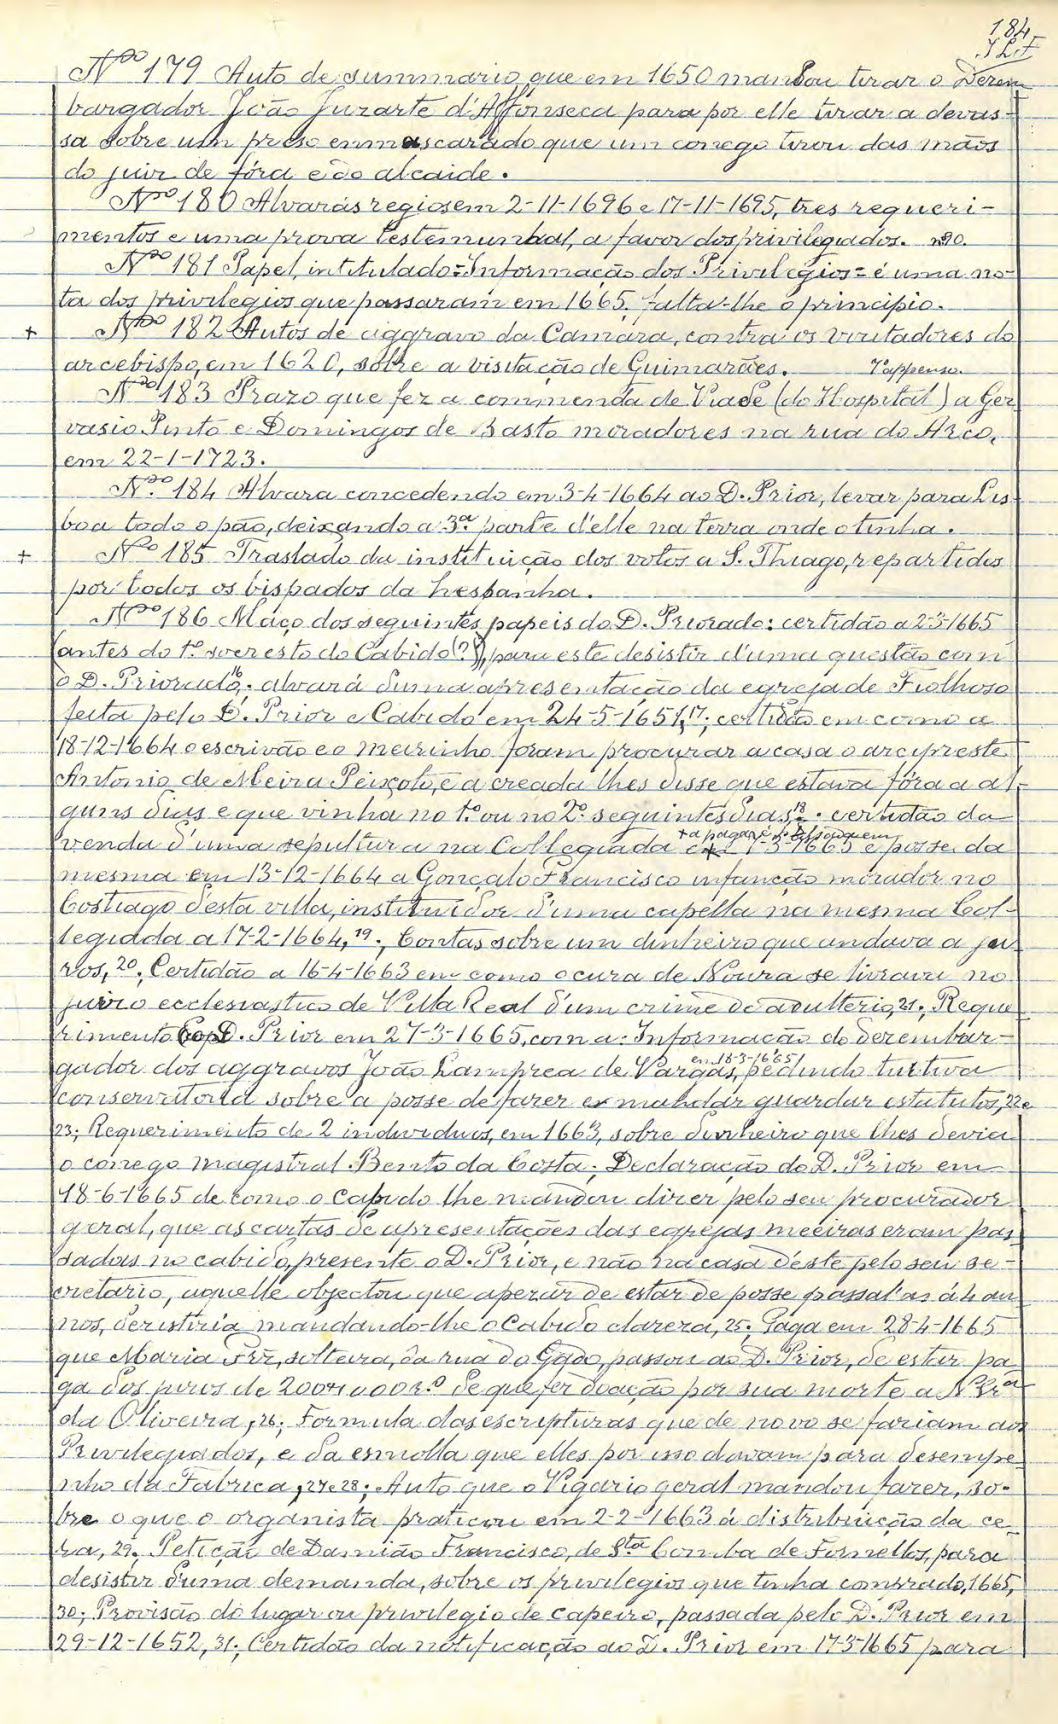 184
J L F
Nº 179 Auto de summario, que em 1650 mandou tirar o Dezem
bargador João Juzarte d'Affonseca para por elle tirar a devas-
sa sobre um preso emmascarado que um conego tirou das mãos
do juiz de fóra e do alcaide.
Nº 180 Alvarás regios em 2-11-1696 e 17-11-1695, tres requeri-
mentos e uma prova testemunhal, a favor dos privilegiados. nº20.
Nº 181 Papel, intitulado = Informação dos Privilegios = é uma no-
ta dos privilegios que passaram em 1665, falta-lhe o principio.
+ Nº 182 Autos de aggravo da Camara, contra os visitadores do
arcebispo, em 1620, sobre a visitação de Guimarães. 1 appenso.
Nº 183 Prazo que fez a commenda de Viade (do Hospital) a Ger
vasio Pinto e Domingos de Basto moradores na rua do Arco,
em 22-1-1723.
Nº 184 Alvara concedendo em 3-4-1664 ao D. Prior, levar para Lis-
boa todo o pão, deixando a 3ª parte d'elle na terra onde o tinha.
+ Nº 185 Traslado da instituição dos votos a S. Thiago, repartidos
por todos os bispados da hespanha.
Nº 186 Maço dos seguintes papeis do D. Priorado: certidão a 2-3-1665
(antes do 1º soeresto do Cabido (?)), para este desistir d'uma questão com
o D. Priorado, 16; alvará d'uma apresentação da egreja de Fiolhoso
feita pelo D. Prior e Cabido em 24-5-1651, 17; certidão em como a
18-12-1664 o escrivão e o meirinho foram procurar a casa o arcypreste
Antonio de Meira Peixoto, e a creada lhes disse que estava fóra a al-
guns dias e que vinha no 1º ou no 2º seguintes dias, 18; certidão da
venda d'uma sepultura na Collegiada 17-3-1665 e posse da
mesma em 13-12-1664 a Gonçalo Francisco infanção morador no
Costiago d'esta villa, instituidor d'uma capella na mesma Col-
legiada a 17-2-1664, 19; Contas sobre um dinheiro que andava a ju
ros, 20; Certidão a 16-4-1663 em como o cura de Noura se livrava no
juizo ecclesiastico de Villa Real d'um crime de adulterio, 21; Reque
rimento do D. Prior em 27-3-1665, com a: Informação do dezembar-
gador dos aggravos João Lamprea de Vargas, em 18-3-1665, pedindo tuitiva
conservatoria sobre a posse de fazer e mandar guardar estatutos, 22 e
23; Requerimento de 2 individuos, em 1663, sobre dinheiro que lhes devia
o conego magistral Bento da Costa; Declaração do D. Prior em
18-6-1665 de como o Cabido lhe mandou dizer pelo seu procurador
geral, que as cartas de apresentações das egrejas meeiras eram pas-
sadas no cabido, presente o D. Prior, e não na casa d'este pelo seu se-
cretario, aquelle objectou que apezar de estar de posse passal'as á 4 an-
nos, desistiria mandando-lhe o Cabido clareza, 25; Paga em 28-4-1665
que Maria Frz, solteira, da rua do Gado, passou ao D. Prior, de estar pa
ga dos juros de 200$000 rs de que fez doação por sua morte a N. Srª
da Oliveira, 26; Formula das escripturas que de novo se fariam aos
Privilegiados, e da esmolla que elles por isso davam para desempe-
nho da Fabrica, 27 e 28; Auto que o Vigario geral mandou fazer, so-
bre o que o organista praticou em 2-2-1663 á distribuição da ce-
ra, 29; Petição de Damião Francisco, de Stª Comba de Fornellos, para
desistir d'uma demanda, sobre os privilegios que tinha comprado, 1665,
30; Provisão do lugar ou privilegio de capeiro, passada pelo D. Prior em
29-12-1652, 31; Certidão da notificação ao D. Prior em 17-3-1665 para